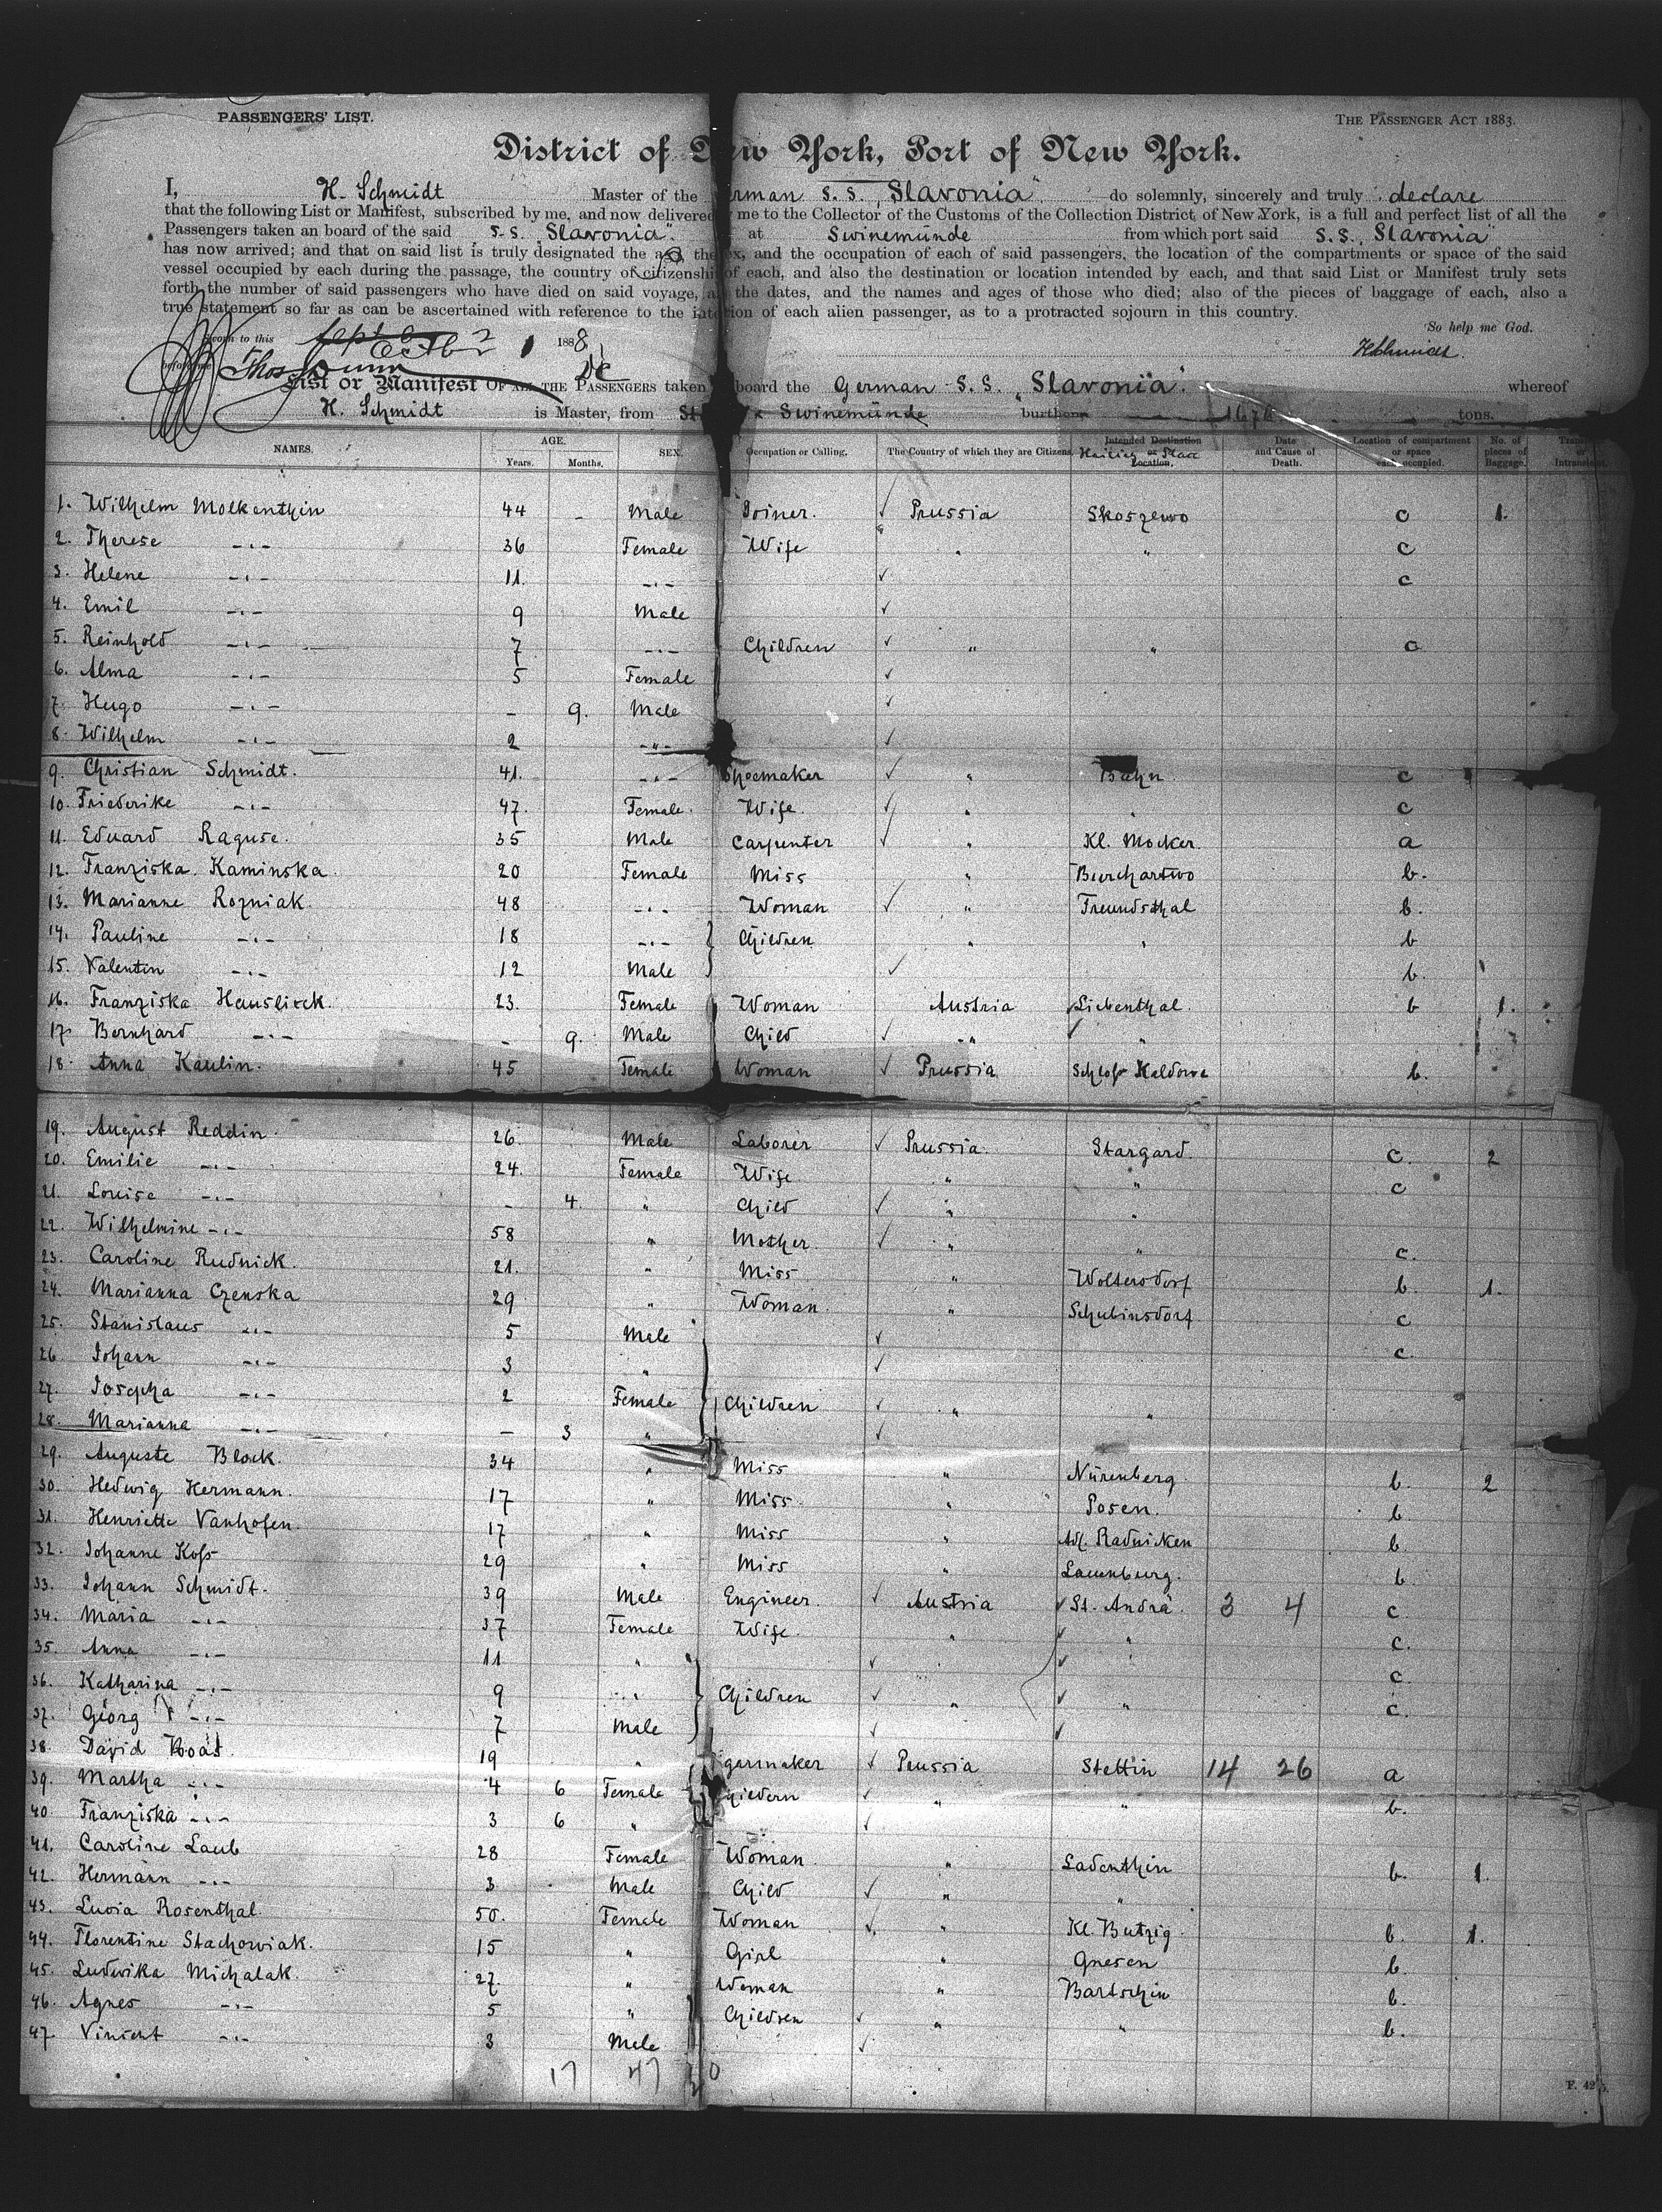 PASSENGERS' LIST.
THE PASSENGER ACT 1883.
District of New York, Port of New York.
I, H. Schmidt Master of the German S.S. "Slavonia" do solemnly, sincerely and truly declare
that the following List or Manifest, subscribed by me, and now delivered by me to the Collector of the Customs of the Collection District of New York, is a full and perfect list of all the
Passengers taken an board of the said S.S. "Slavonia" at Swinemünde from which port said S.S. "Slavonia"
has now arrived; and that on said list is truly designated the age, the sex, and the occupation of each of said passengers, the location of the compartments or space of the said
vessel occupied by each during the passage, the country of citizenship of each, and also the destination or location intended by each, and that said List or Manifest truly sets
forth the number of said passengers who have died on said voyage, and the dates, and the names and ages of those who died; also of the pieces of baggage of each, also a
true statement so far as can be ascertained with reference to the intention of each alien passenger, as to a protracted sojourn in this country.
So help me God.
Sworn to this Octbr 2 1888
HSchmidt.
before me Thos Dunn
List or Manifest OF ALL THE PASSENGERS taken on board the German S.S. "Slavonia". whereof
H. Schmidt is Master, from Swinemünde burthen 1676 tons.
NAMES. AGE. Years. Months. SEX. Occupation or Calling. The Country of which they are Citizens. Intended Destination or Place Location. Date and Cause of Death. Location of compartment or space each occupied. No. of pieces of Baggage.
1. Wilhelm Molkenthin 44 - Male Joiner. Prussia Skoszewo c 1.
2. Therese -.- 36 Female Wife " " c
3. Helene -.- 11. -.- c
4. Emil -.- 9 Male
5. Reinhold -.- 7 -.- Children " " c
6. Alma -.- 5 Female
7. Hugo -.- - 9. Male
8. Wilhelm -.- 2 -"-
9. Christian Schmidt. 41. -.- Shoemaker " Bahn c
10. Friederike -.- 47. Female. Wife. " " c
11. Eduard Raguse. 35 Male Carpenter " Kl. Mocker a
12. Franziska Kaminska. 20 Female Miss " Burchartwo b.
13. Marianne Rozniak. 48 -.- Woman " Freundsthal b.
14. Pauline -.- 18 -.- Children " " b
15. Valentin -.- 12 Male b.
16. Franziska Hauslisek. 23. Female Woman Austria Liebenthal. b 1.
17. Bernhard -.- - 9. Male Child " "
18. Anna Kaulin. 45 Female Woman Prussia Schloß Kaldowe b.
19. August Reddin. 26. Male Laborer Prussia. Stargard. c. 2
20. Emilie -.- 24. Female Wife " " c
21. Louise -.- - 4. " Child " "
22. Wilhelmine -.- 58 " Mother. " " c.
23. Caroline Rudnick. 21. " Miss " Woltersdorf b. 1.
24. Marianna Czenska 29 " Woman. " Schubinsdorf c
25. Stanislaus -.- 5 Male c.
26. Johann -.- 3 "
27. Josepha -.- 2 Female Children " "
28. Marianna -.- - 3 "
29. Auguste Block. 34 " Miss " Nürenberg. b. 2
30. Hedwig Hermann. 17 " Miss. " Posen. b
31. Henriette Vanhofen. 17 " Miss " Adl. Radnicken b.
32. Johanne Koß 29 " Miss " Lauenburg. b.
33. Johann Schmidt. 39 Male Engineer. Austria St. Andrä. 3 4 c.
34. Maria -.- 37 Female Wife. " " c.
35. Anna -.- 11 " " c.
36. Katharina -.- 9 -.- Children " " c.
37. Georg -.- 7 Male
38. David 19 " Prussia Stettin 14 26 a
39. Martha -.- 4 6 Female " " b.
40. Franziska -.- 3 6 "
41. Caroline Laub 28 Female Woman. " Ladenthin b. 1.
42. Hermann -.- 3 Male Child " "
43. Lucia Rosenthal 50. Female Woman " Kl. Butzig. b. 1.
44. Florentine Stachowiak. 15 " Girl " Gnesen b.
45. Ludwika Michalak. 27. " Woman " Bartschin b.
46. Agnes -.- 5 " Children " " b.
47. Vincent -.- 3 Male
17 47 30
F. 42